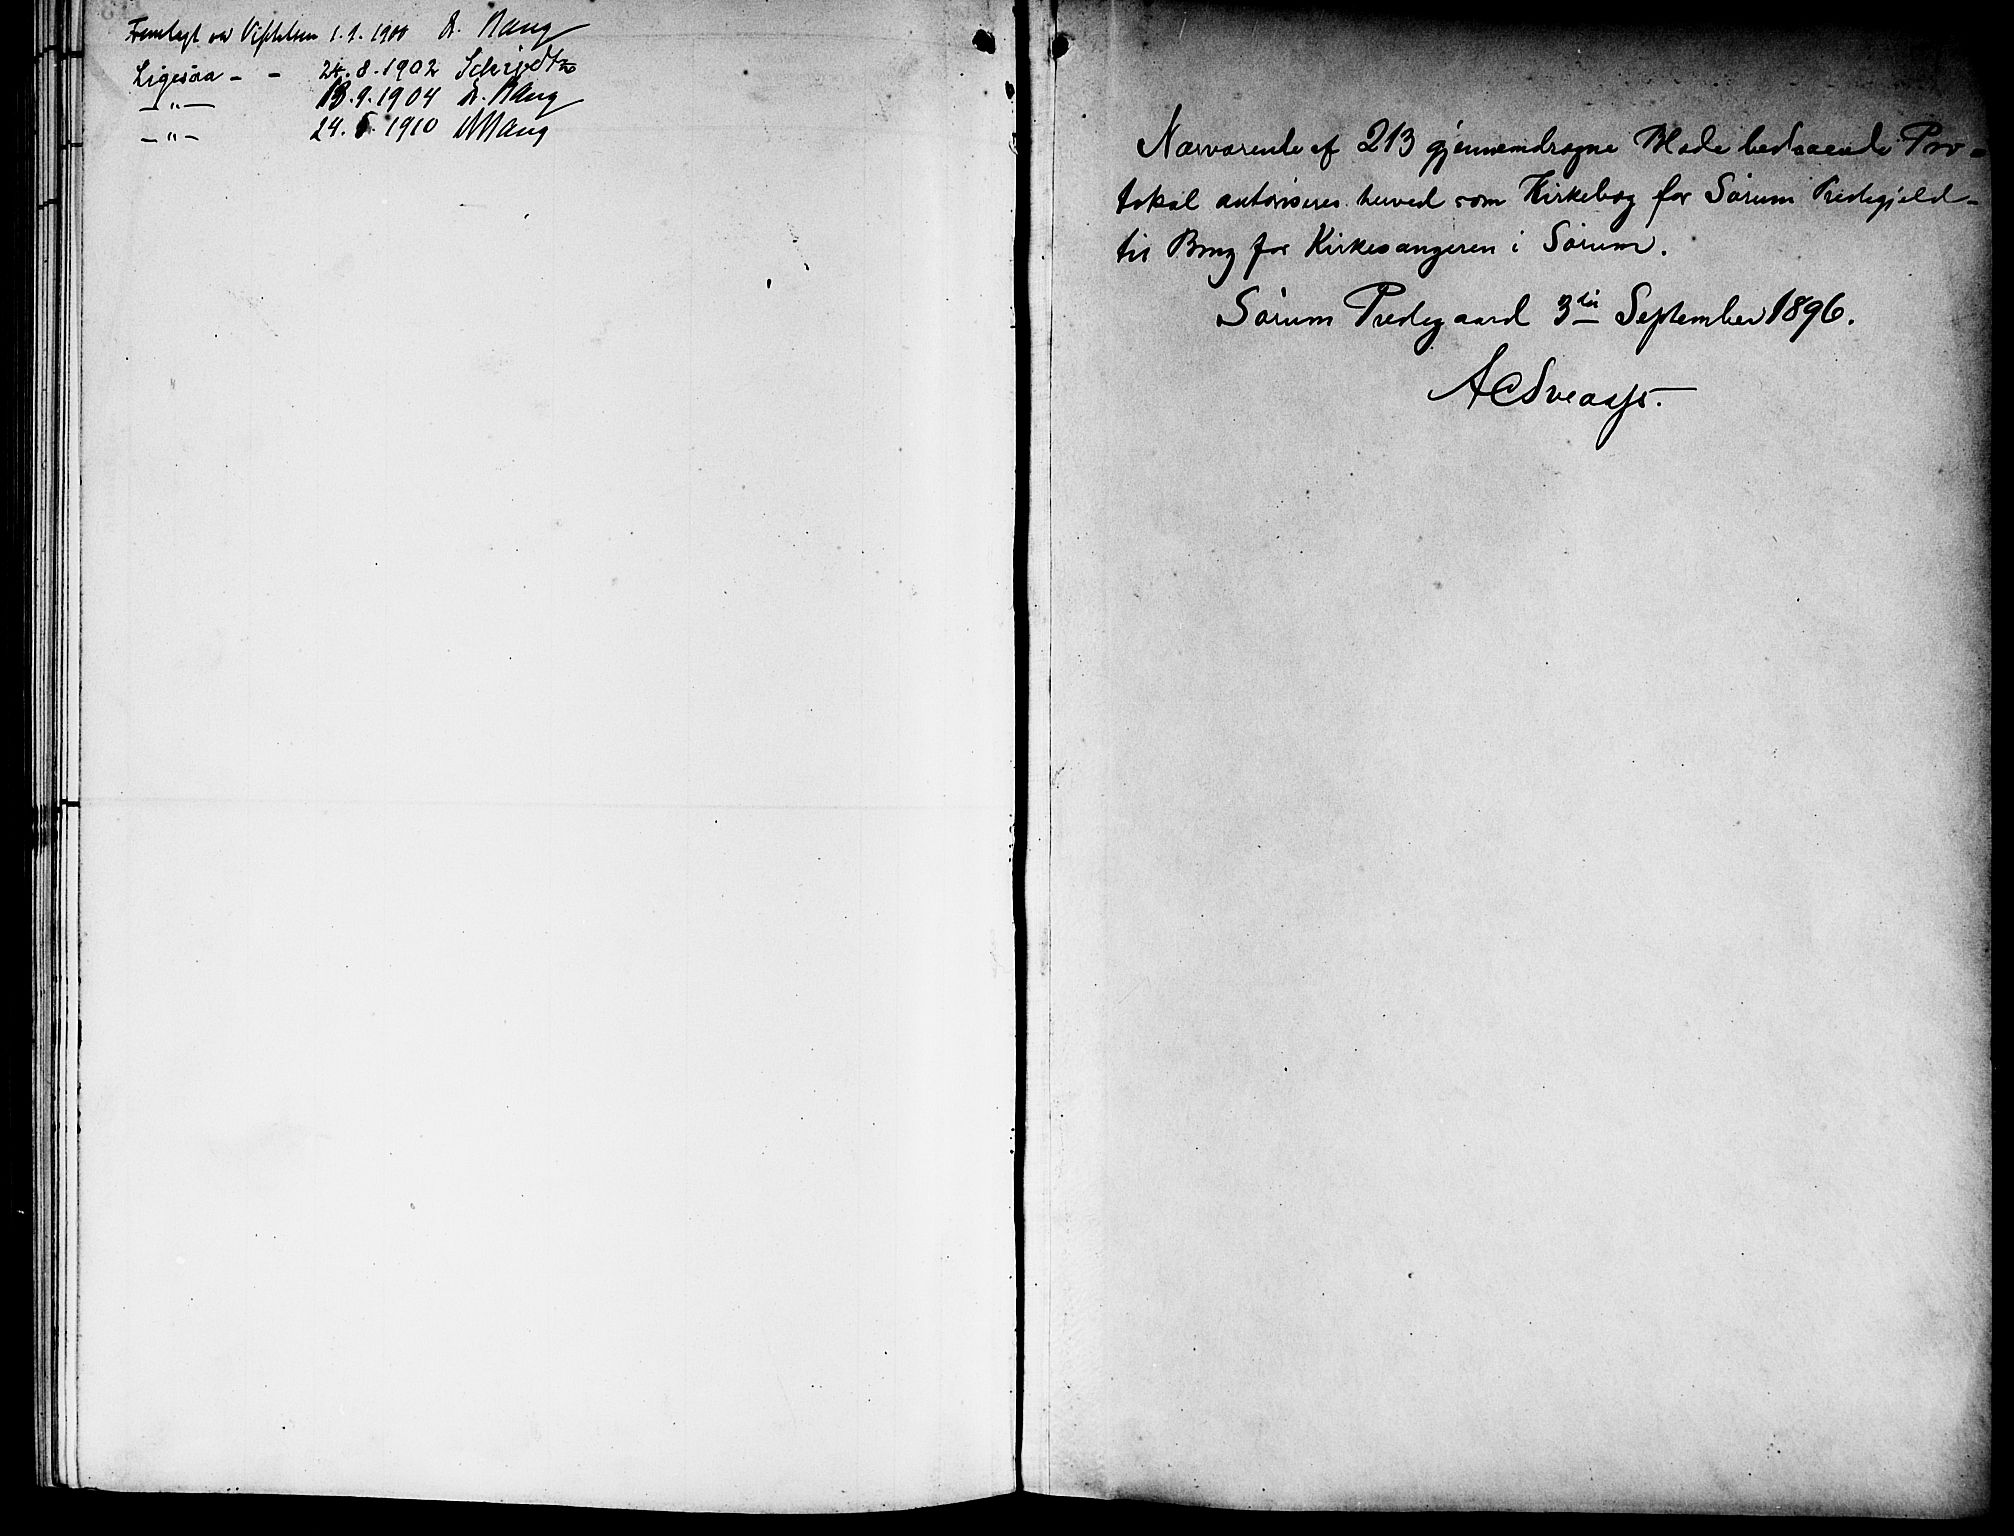 Fremlagt ved Visitatsen 1.9.1900 A. Bang
Ligesaa - - 24.8.1902 Schijødtz
— " — 18.9.1904 A. Bang
— " — 24. 1910 Bang
Nærværende af 213 gjennemdragne Blade bestaaende Pro-
tokol autoriseres herved som Kirkebog for Sørum Prestegjeld
til Brug for Kirkesangeren i Sørum.
Sørum Prestegaard 3die September 1896.
A C Sveaas.